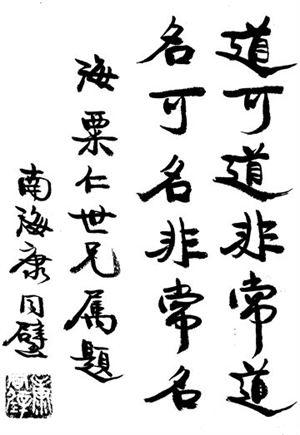 道可道非常道
名可名非常名
海粟仁世兄属题
南海康同璧